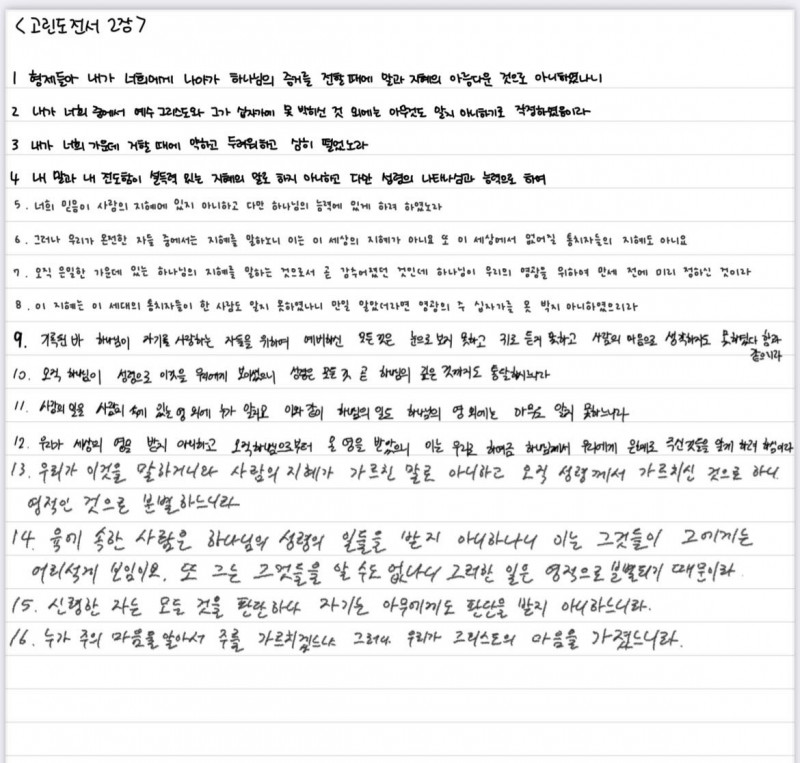 <고린도전서 2장>
1 형제들아 내가 너희에게 나아가 하나님의 증거를 전할 때에 말과 지혜의 아름다운 것으로 아니하였나니
2 내가 너희 중에서 예수 그리스도와 그가 십자가에 못 박히신 것 외에는 아무것도 알지 아니하기로 작정하였음이라
3 내가 너희 가운데 거할 때에 약하고 두려워하고 심히 떨었노라
4 내 말과 내 전도함이 설득력 있는 지혜의 말로 하지 아니하고 다만 성령의 나타나심과 능력으로 하여
5. 너희 믿음이 사람의 지혜에 있지 아니하고 다만 하나님의 능력에 있게 하려 하였노라
6. 그러나 우리가 온전한 자들 중에서는 지혜를 말하노니 이는 이 세상의 지혜가 아니요 또 이 세상에서 없어질 통치자들의 지혜도 아니요
7. 오직 은밀한 가운데 있는 하나님의 지혜를 말하는 것으로서 곧 감추어졌던 것인데 하나님이 우리의 영광을 위하여 만세 전에 미리 정하신 것이라
8. 이 지혜는 이 세대의 통치자들이 한 사람도 알지 못하였나니 만일 알았더라면 영광의 주 십자가를 못 박지 아니하였으리라
9. 기록된 바 하나님이 자기를 사랑하는 자들을 위하여 예비하신 모든 것은 눈으로 보지 못하고 귀로 듣지 못하고 사람의 마음으로 생각하지도 못하였다 함과
같으니라
10. 오직 하나님이 성령으로 이것을 우리에게 보이셨으니 성령은 모든 것 곧 하나님의 깊은 것까지도 통달하시느니라
11. 사람의 일을 사람의 속에 있는 영 외에 누가 알리요 이와 같이 하나님의 일도 하나님의 영 외에는 아무도 알지 못하느니라
12. 우리가 세상의 영을 받지 아니하고 오직 하나님으로부터 온 영을 받았으니 이는 우리로 하여금 하나님께서 우리에게 은혜로 주신 것들을 알게 하려 하심이라
13. 우리가 이것을 말하거니와 사람의 지혜가 가르친 말로 아니하고 오직 성령께서 가르치신 것으로 하니
영적인 것으로 분별하느니라
14. 육에 속한 사람은 하나님의 성령의 일들을 받지 아니하나니 이는 그것들이 그에게는
어리석게 보임이요, 또 그는 그것들을 알 수도 없나니 그러한 일은 영적으로 분별되기 때문이라.
15. 신령한 자는 모든 것을 판단하나 자기는 아무에게도 판단을 받지 아니하느니라.
16. 누가 주의 마음을 알아서 주를 가르치겠느냐 그러나 우리가 그리스도의 마음을 가졌느니라.